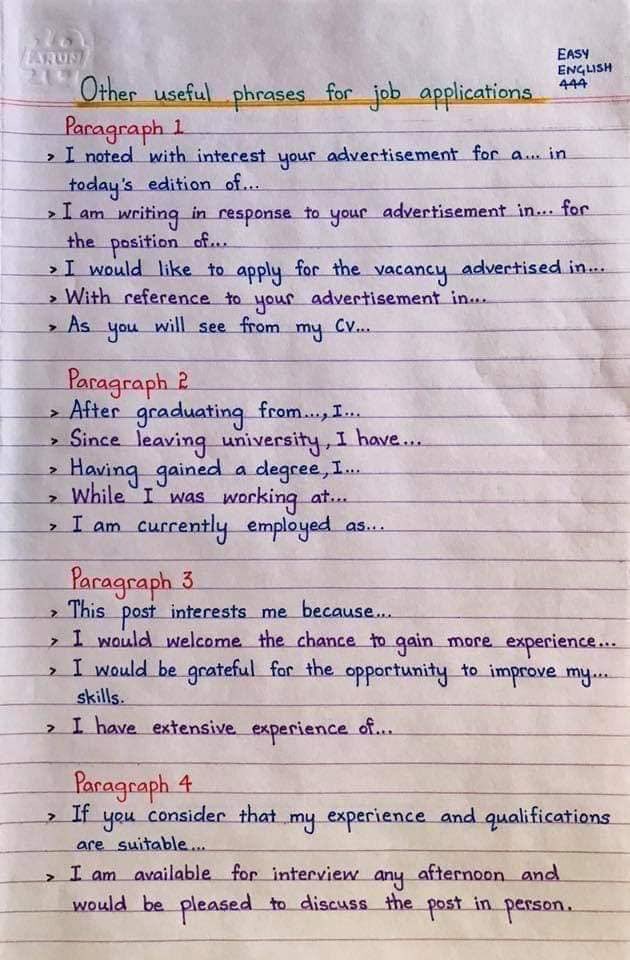 ARUN
EASY
ENGLISH
444
Other useful phrases for job applications
Paragraph 1
> I noted with interest your advertisement for a... in
today's edition of...
> I am writing in response to your advertisement in... for
the position of...
> I would like to apply for the vacancy advertised in...
> With reference to your advertisement in...
> As you will see from my CV...
Paragraph 2
> After graduating from..., I...
> Since leaving university, I have...
> Having gained a degree, I...
> While I was working at...
> I am currently employed as...
Paragraph 3
> This post interests me because...
> I would welcome the chance to gain more experience...
> I would be grateful for the opportunity to improve my...
skills.
> I have extensive experience of...
Paragraph 4
> If you consider that my experience and qualifications
are suitable...
> I am available for interview any afternoon and
would be pleased to discuss the post in person.